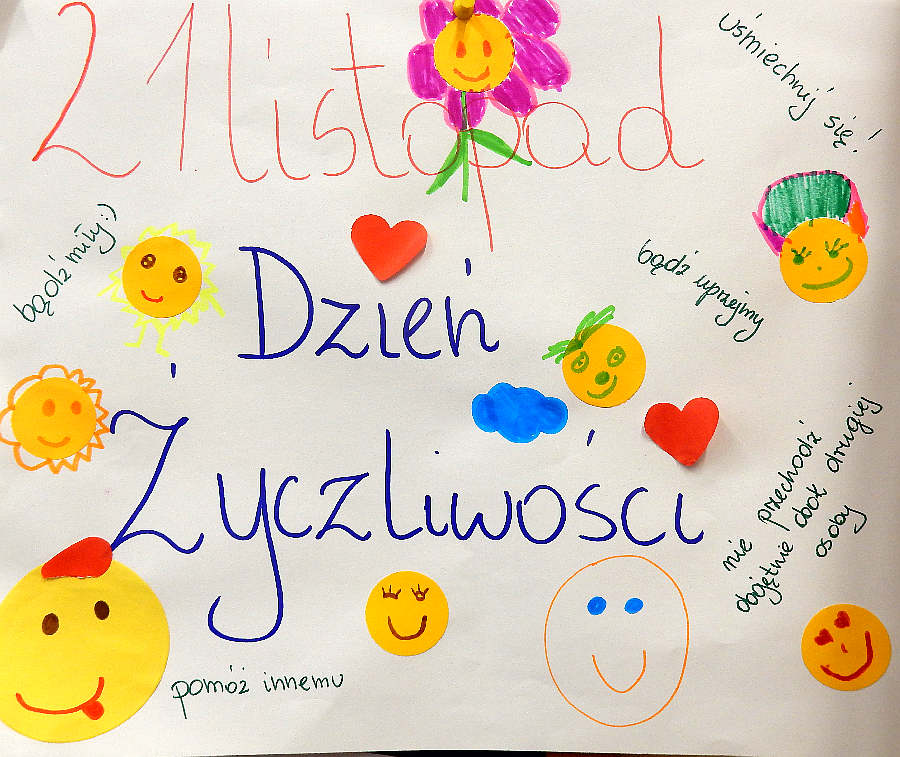 21 listopad
uśmiechnij się!
bądź miły:)
bądź uprzejmy
Dzień
Życzliwości
nie przechodź
obojętnie obok drugiej
osoby
pomóż innemu